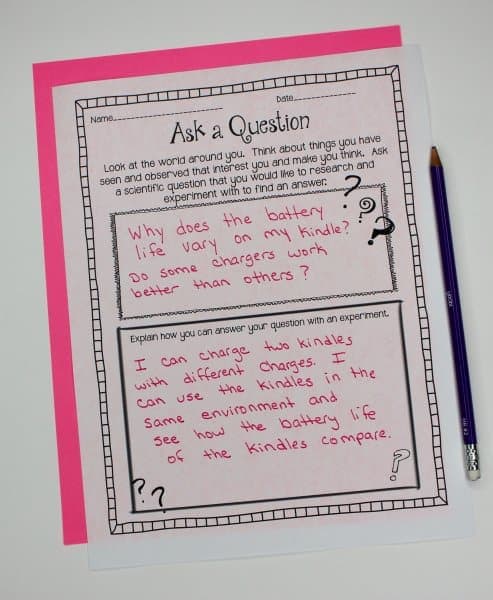 Name
Date
Ask a Question
Look at the world around you. Think about things you have
seen and observed that interest you and make you think. Ask
a scientific question that you would like to research and
experiment with to find an answer.
Why does the battery
life vary on my Kindle?
Do some chargers work
better than others?
Explain how you can answer your question with an experiment.
I can charge two Kindles
with different charges. I
can use the Kindles in the
same environment and
see how the battery life
of the Kindles compare.